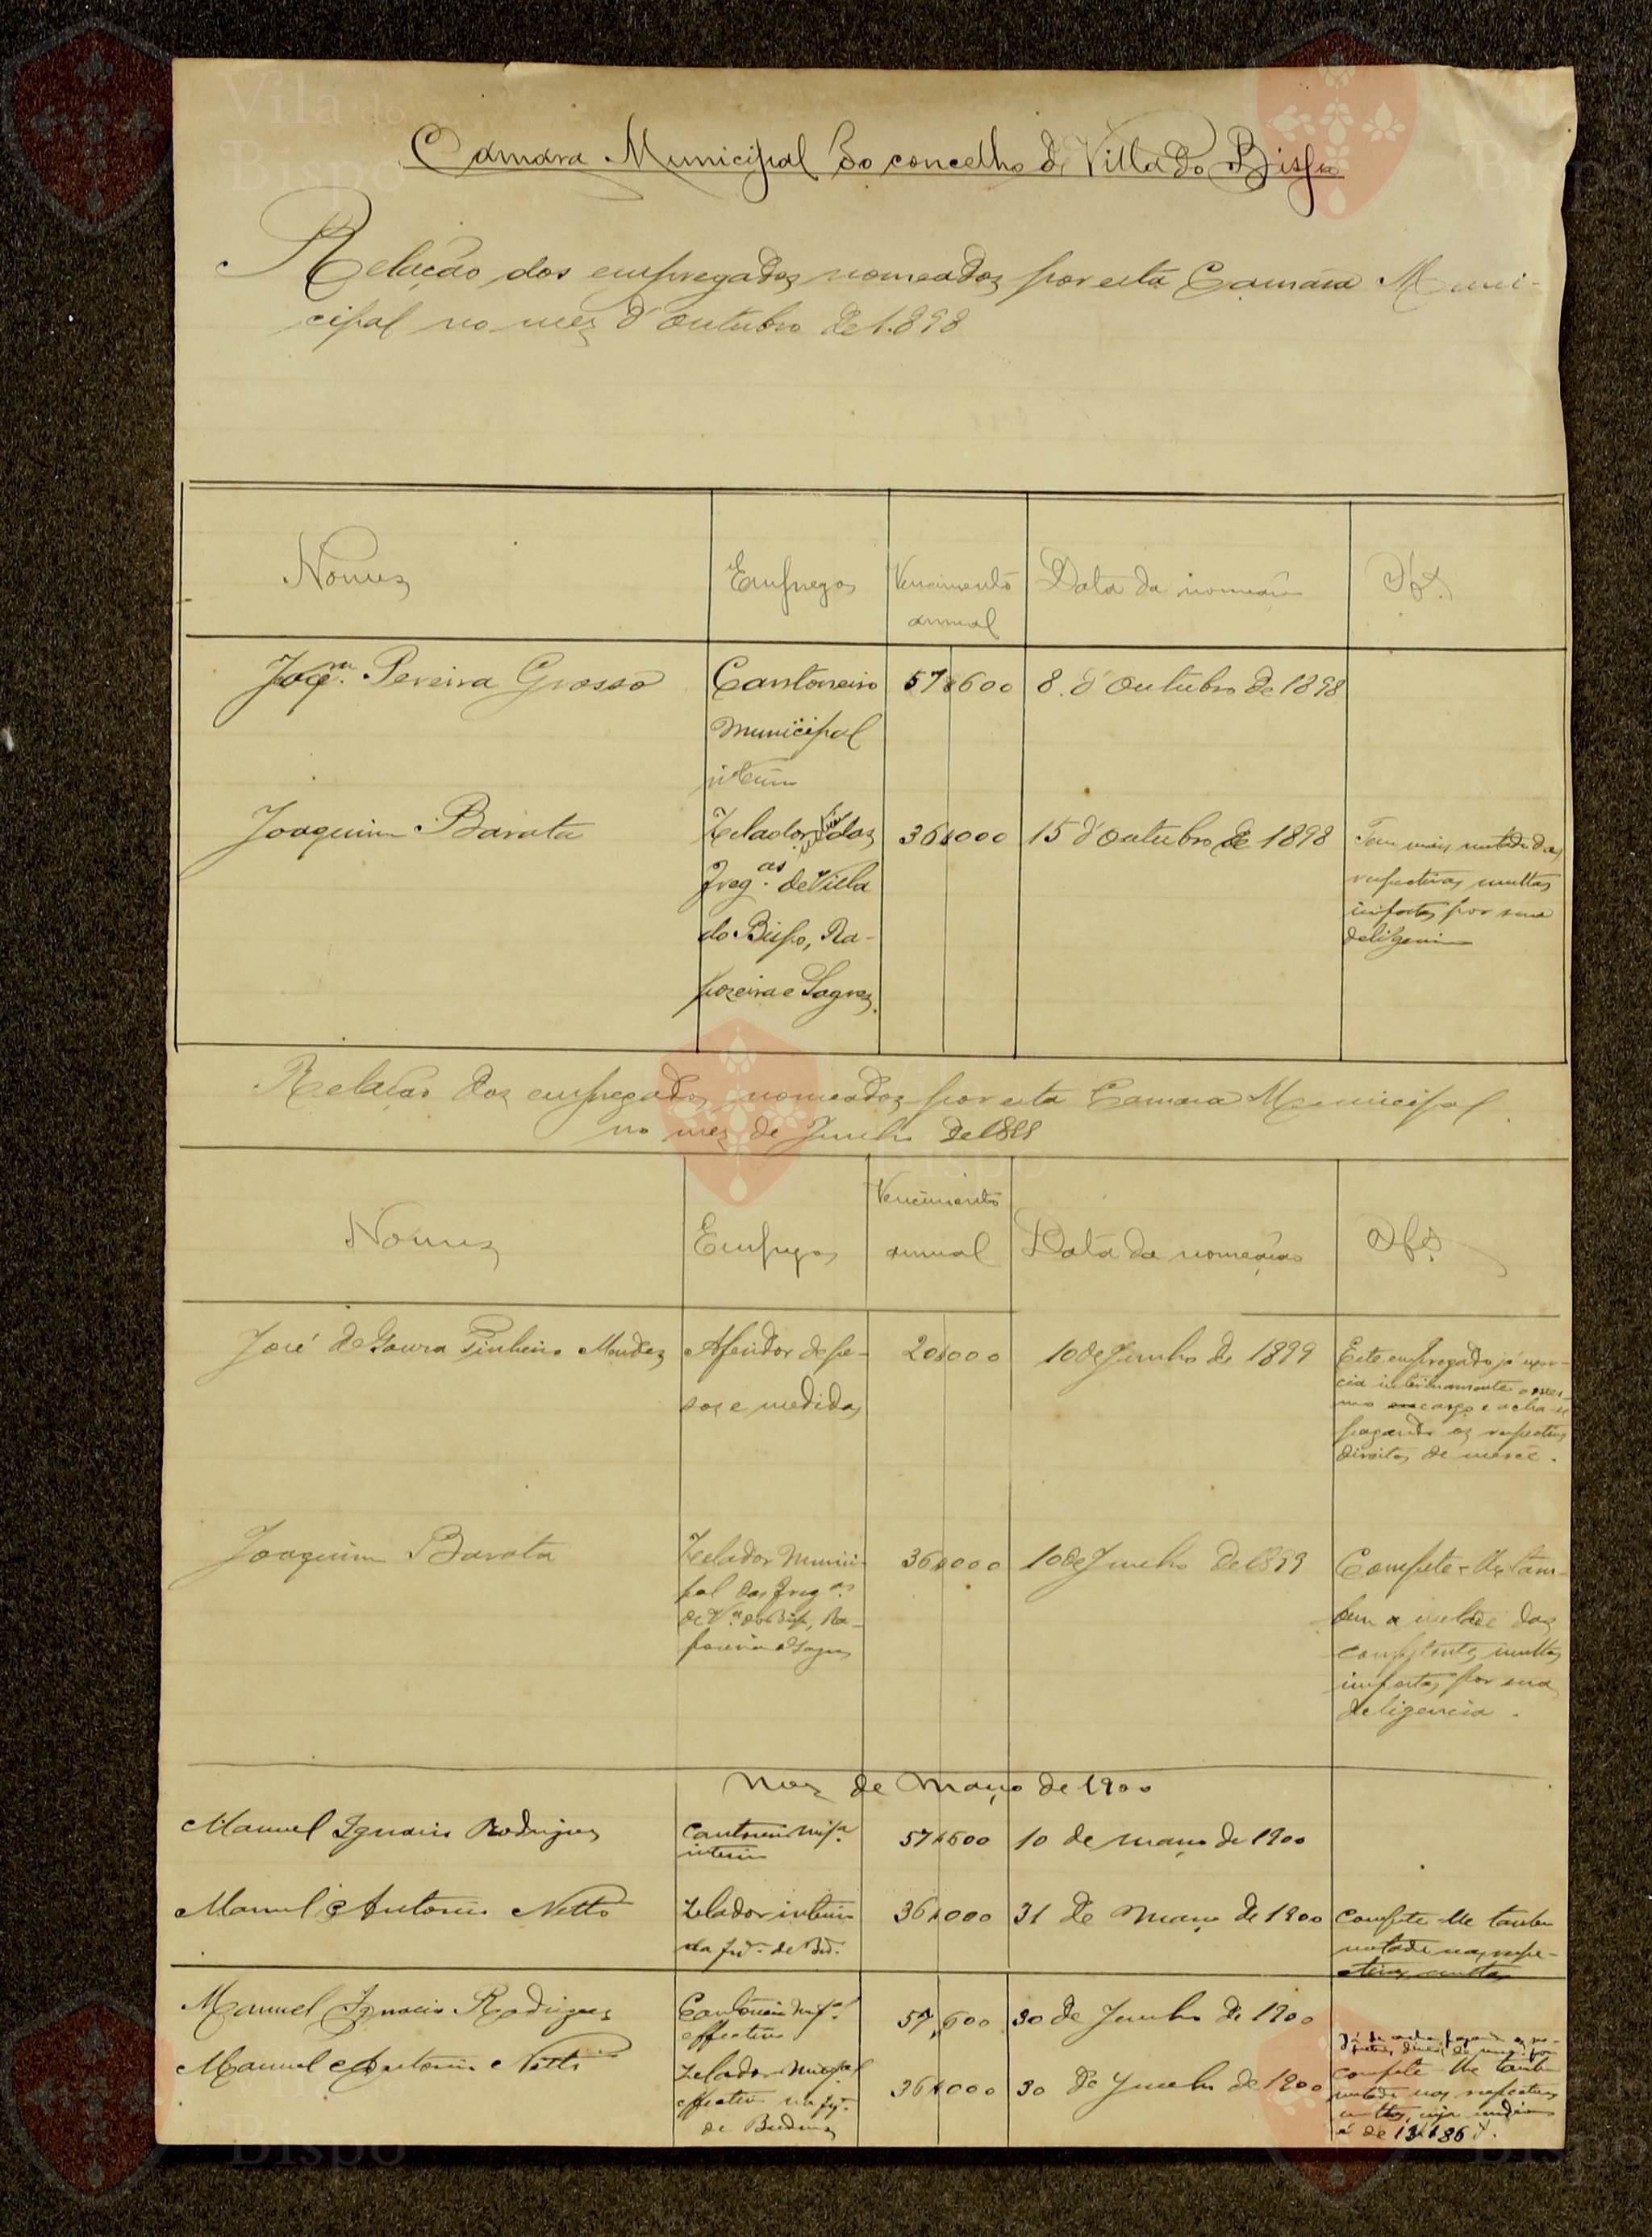 Camara Municipal do concelho de Villa do Bispo
Relação dos empregados nomeados por esta Camara Muni-
cipal no mez d'outubro de 1898
Nomes
Empregos
Vencimento
annual
Data da nomeação
Obs.
Joaqm. Pereira Grosso
Cantoneiro
municipal
interino
57$600
8 d'outubro de 1898
Joaquim Barata
Zelador das
Freg.as de Villa
do Bispo, Ra-
pozeira e Sagres.
36$000
15 d'outubro de 1898
Tem mais metade das
respectivas multas
impostas por sua
deligencia
Relação dos empregados nomeados por esta Camara Municipal
no mez de Junho de 1899
Nomes
Empregos
Vencimento
annual
Data da nomeação
Obs.
José de Pinheiro Mendes
Aferidor de pe-
sos e medidas
20$000
10 de Junho de 1899
Este empregado já exer-
cia interinamente o mes-
mo cargo e acha-se
pagando os respectivos
direitos de mercê.
Joaquim Barata
Zelador Munici-
pal das Freg.as
de V.a do Bispo, Ra-
poseira e Sagres
36$000
10 de Junho de 1899
Compete-lhe tam-
bem a metade das
competentes multas
impostas por sua
deligencia.
Mez de Março de 1900
Manuel Ignacio Rodrigues
Cantoneiro
interino
57$600
10 de março de 1900
Manuel Antonio Netto
Zelador interino
da de
36$000
31 de Março de 1900
Compete-lhe tambem
metade nas respe-
ctivas multas
Manuel Ignacio Rodrigues
Cantoneiro
effectivo
57,600
30 de Junho de 1900
Já se acha pagando os
Manuel Antonio Netto
Zelador
effectivo na
de Budens
36$000
30 de Junho de 1900
compete-lhe tambem
metade nas respectivas
multas, cuja
é de
Vila do
Bispo